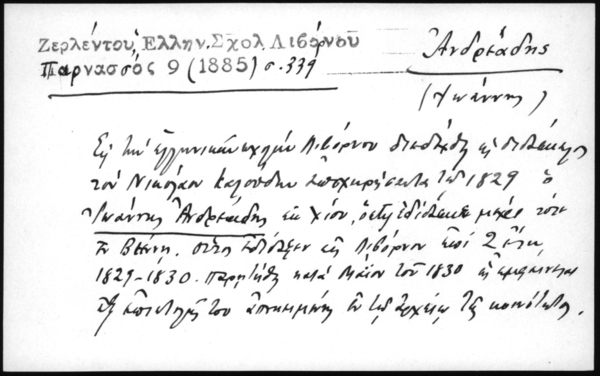 Ζερλέντου, Ἑλλην. Σχολ. Λιβόρνου
Παρνασσός 9 (1885) σ. 339
Ἀνδρεάδης
(Ἰωάννης)
Εἰς τὴν ἑλληνικὴν σχολὴν Λιβόρνου διεδέχθη ὡς διδάσκαλος
τὸν Νικόλαον Καλούδην ἀποχωρήσαντα τῷ 1829 ὁ
Ἰωάννης Ἀνδρεάδης ἐκ Χίου, ὅστις ἐδίδασκε μέχρι τότε
ἐν Βιέννῃ. οὗτος ἐδίδαξεν εἰς Λιβόρνον ἐπί 2 ἔτη
1829-1830. παρῃτήθη κατὰ Μάϊον τοῦ 1830 ὡς ἐμφαίνεται
ἐξ ἐπιστολῆς του ἀποκειμένης ἐν τῷ ἀρχείῳ τῆς κοινότητος.